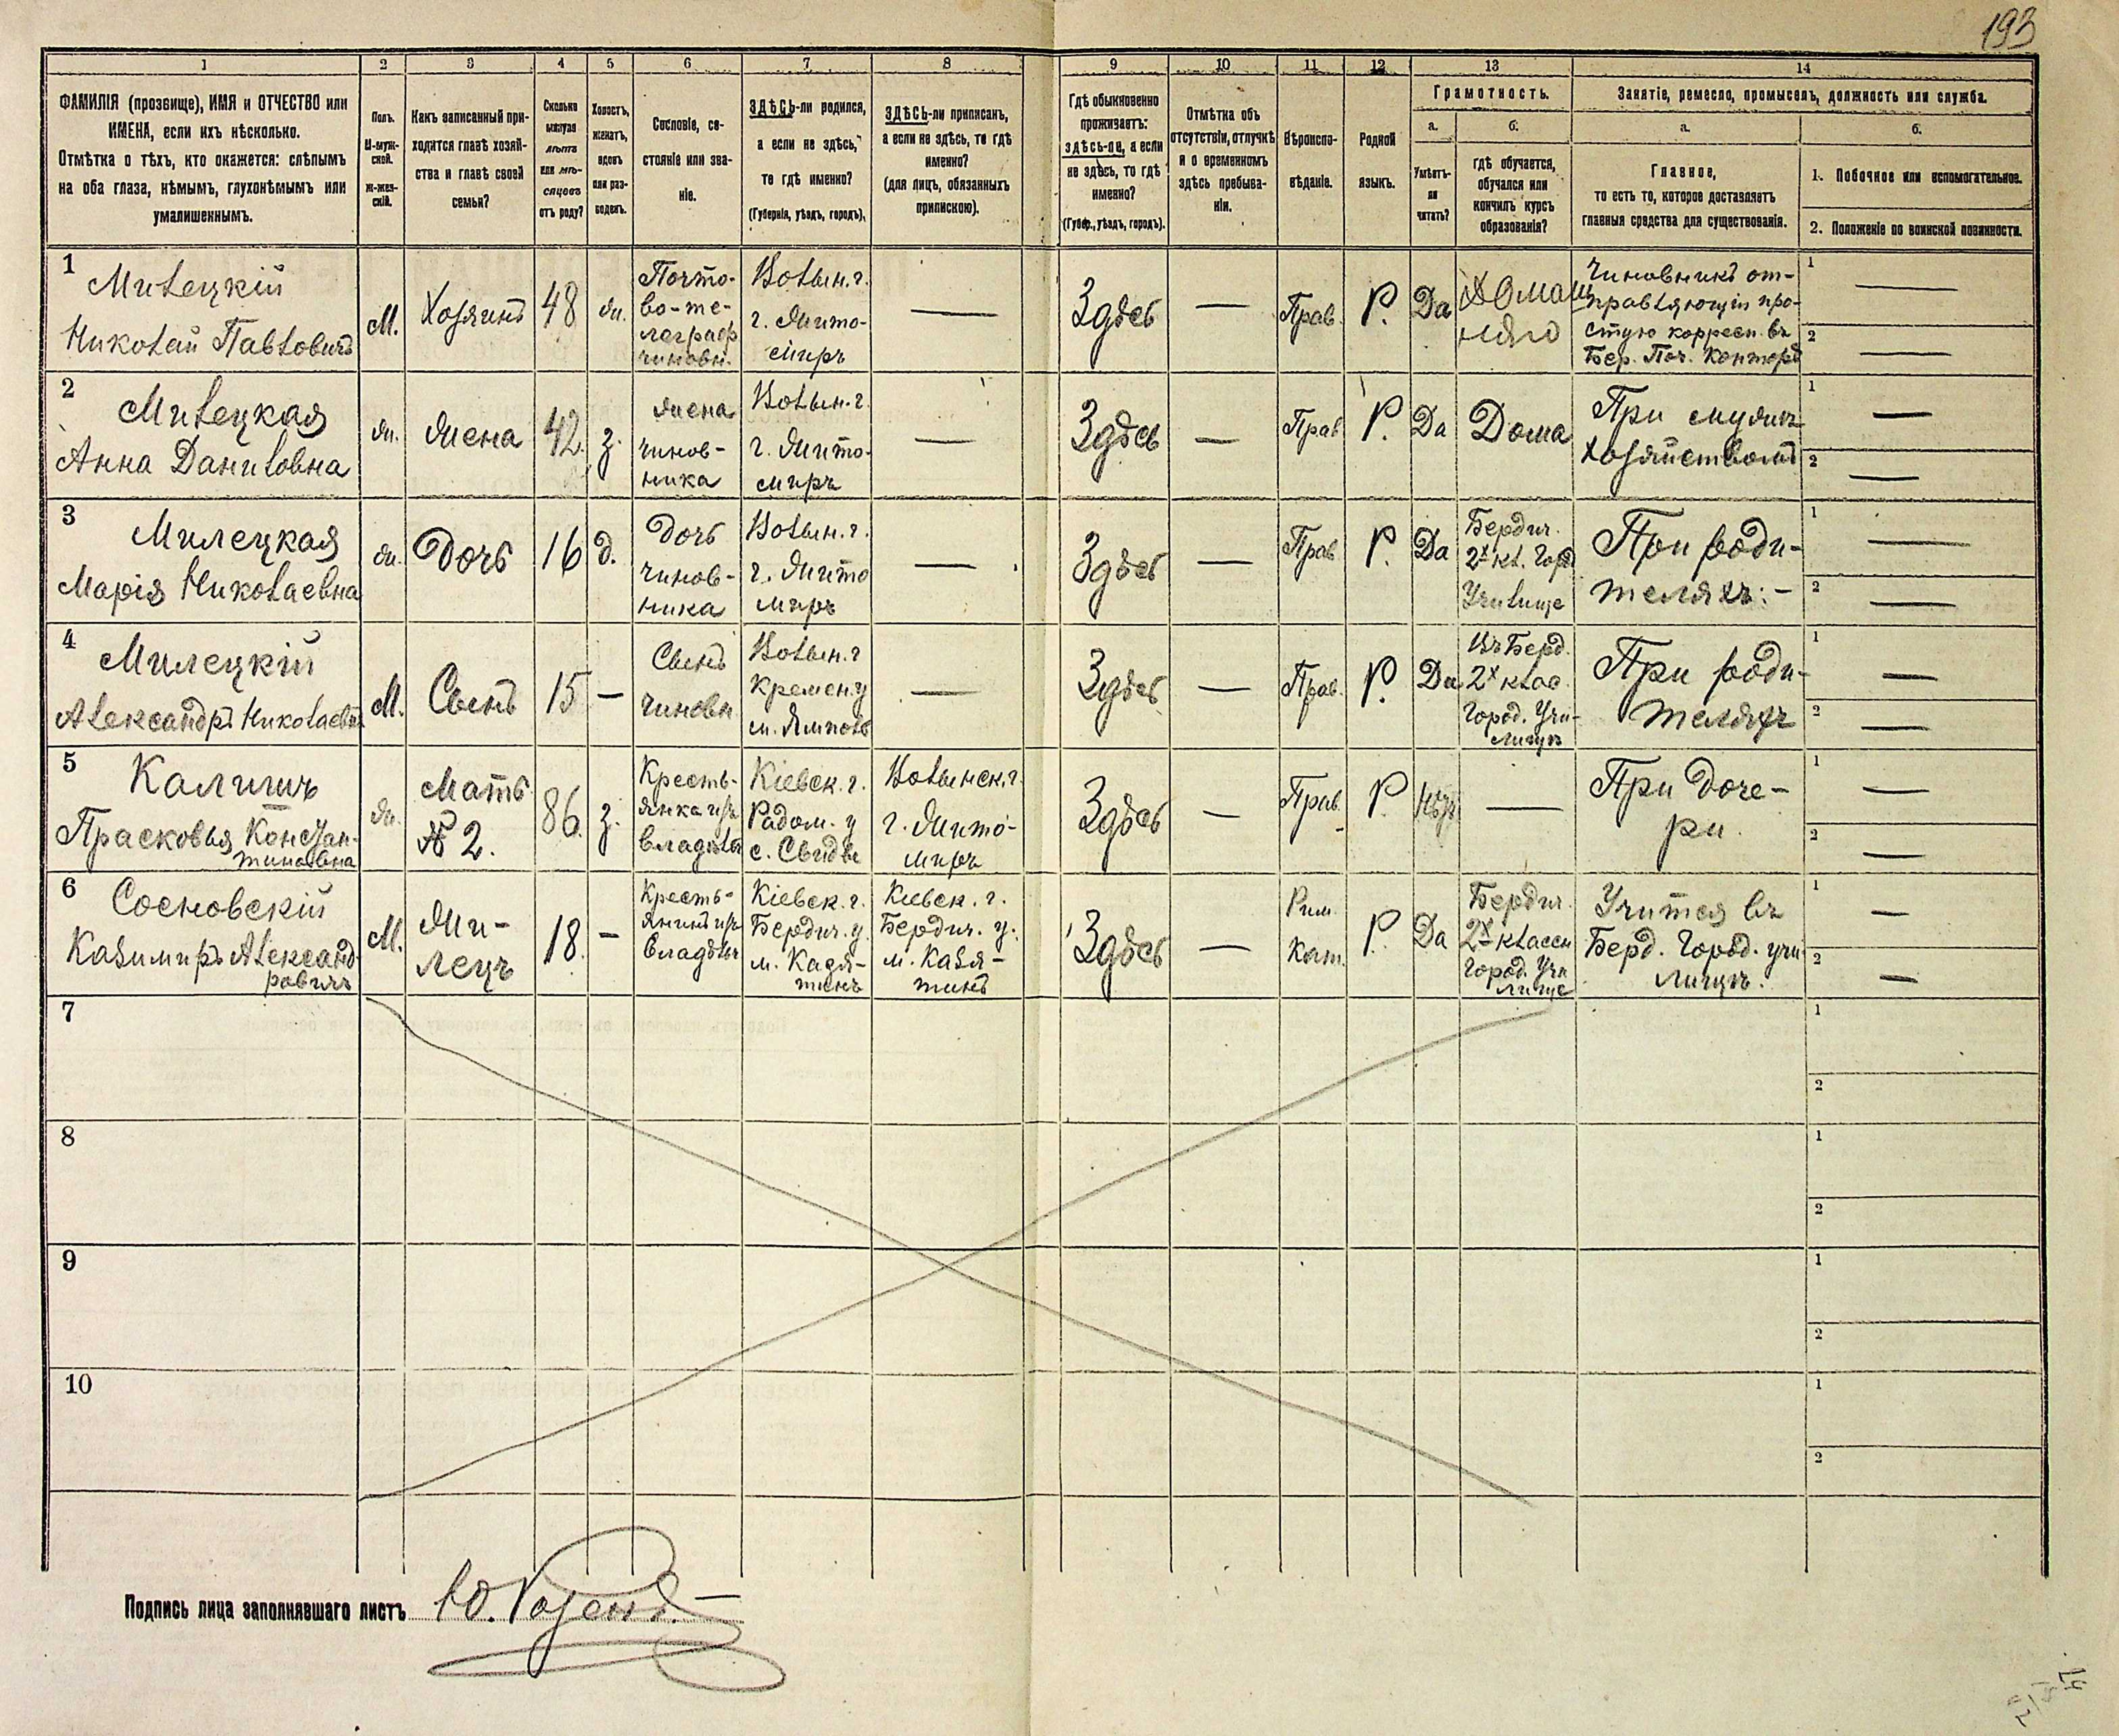 193
1
2
3
4
5
6
7
8
9
10
11
12
13
14
ФАМИЛІЯ (прозвище), ИМЯ и ОТЧЕСТВО или
ИМЕНА, если ихъ нѣсколько.
Отмѣтка о тѣхъ, кто окажется: слѣпымъ
на оба глаза, нѣмымъ, глухонѣмымъ или
умалишеннымъ.
Полъ.
М-муж-
ской.
Ж-жен-
скій.
Какъ записанный при-
ходится главѣ хозяй-
ства и главѣ своей
семьи?
Сколько
минуло
лѣтъ
или мѣ-
сяцевъ
отъ роду?
Холостъ,
женатъ,
вдовъ
или раз-
веденъ.
Сословіе, со-
стояніе или зва-
ніе.
ЗДѢСЬ-ли родился,
а если не здѣсь,
то гдѣ именно?
(Губернія, уѣздъ, городъ).
ЗДѢСЬ-ли приписанъ,
а если не здѣсь, то гдѣ
именно?
(для лицъ, обязанныхъ
припискою).
Гдѣ обыкновенно
проживаетъ:
здѣсь-ли, а если
не здѣсь, то гдѣ
именно?
(Губер., уѣздъ, городъ).
Отмѣтка объ
отсутствіи, отлучкѣ
и о временномъ
здѣсь пребыва-
ніи.
Вѣроиспо-
вѣданіе.
Родной
языкъ.
Грамотность.
а.
Умѣетъ-
ли
читать?
б.
гдѣ обучается,
обучался или
кончилъ курсъ
образованія?
Занятіе, ремесло, промыселъ, должность или служба.
а.
Главное,
то есть то, которое доставляетъ
главныя средства для существованія.
б.
1. Побочное или вспомогательное.
2. Положеніе по воинской повинности.
1
Милецкій
Николай Павловичъ
М.
Хозяинъ
48
ж.
Почто-
во-те-
леграф
чиновн.
Волын. г.
г. Жито-
миръ
—
Здѣсь
—
Прав.
Р.
Да
Домаш
няго
Чиновникъ от-
правляющій про-
стую корресп. въ
Бер. Поч. Конторѣ
1 —
2 —
2
Милецкая
Анна Даниловна
ж.
Жена
42
з.
Жена
чинов-
ника
Волын. г.
г. Жито-
миръ
—
Здѣсь
—
Прав
Р.
Да
Дома
При мужѣ
хозяйствомъ
1 —
2 —
3
Милецкая
Марія Николаевна
ж.
Дочь
16
д.
Дочь
чинов-
ника
Волын. г.
г. Жито
миръ
—
Здѣсь
—
Прав
Р.
Да
Бердич.
2х кл. Гор
Училище
При роди-
теляхъ: -
1 —
2 —
4
Милецкій
Александръ Николаевъ
М.
Сынъ
15
—
Сынъ
чиновн
Волын. г
Кремен. у
м. Ямполь
—
Здѣсь
—
Прав.
Р.
Да
Въ Берд.
2х клас.
Город. Учи-
лищѣ
При роди-
теляхъ
1 —
2 —
5
Калишъ
Прасковья Констан-
тиновна
ж.
Мать
№ 2.
86
з.
Кресть-
янка изъ
владѣл
Кіевск. г.
Радом. у
Волынск. г.
г. Жито-
миръ
Здѣсь
—
Прав.
Р
Нѣтъ
—
При доче-
ри.
1 —
2 —
6
Сосновскій
Казимиръ Александ
ровичъ
М.
Жи-
лецъ
18
—
Кресть-
янинъ изъ
владѣл
Кіевск. г.
Бердич. у.
м. Казя-
тинъ
Кіевск. г.
Бердич. у.
м. Казя-
тинъ
Здѣсь
—
Рим.
Кат.
Р.
Да
Бердич.
2х классн
Город. Учи
лище
Учится въ
Берд. Город. учи-
лищѣ.
1 —
2 —
7
1
2
8
1
2
9
1
2
10
1
2
Подпись лица заполнявшаго листъ